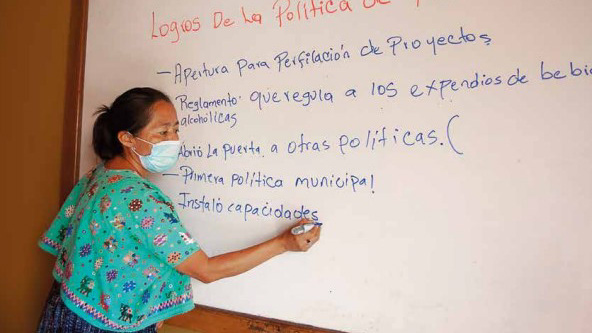 Logros De La Política De
- Apertura para Perfilación de Proyectos
Reglamento: que regula a los expendios de bebi
alcohólicas
Abrió La puerta a otras políticas. (
- Primera política municipal
Instaló capacidades